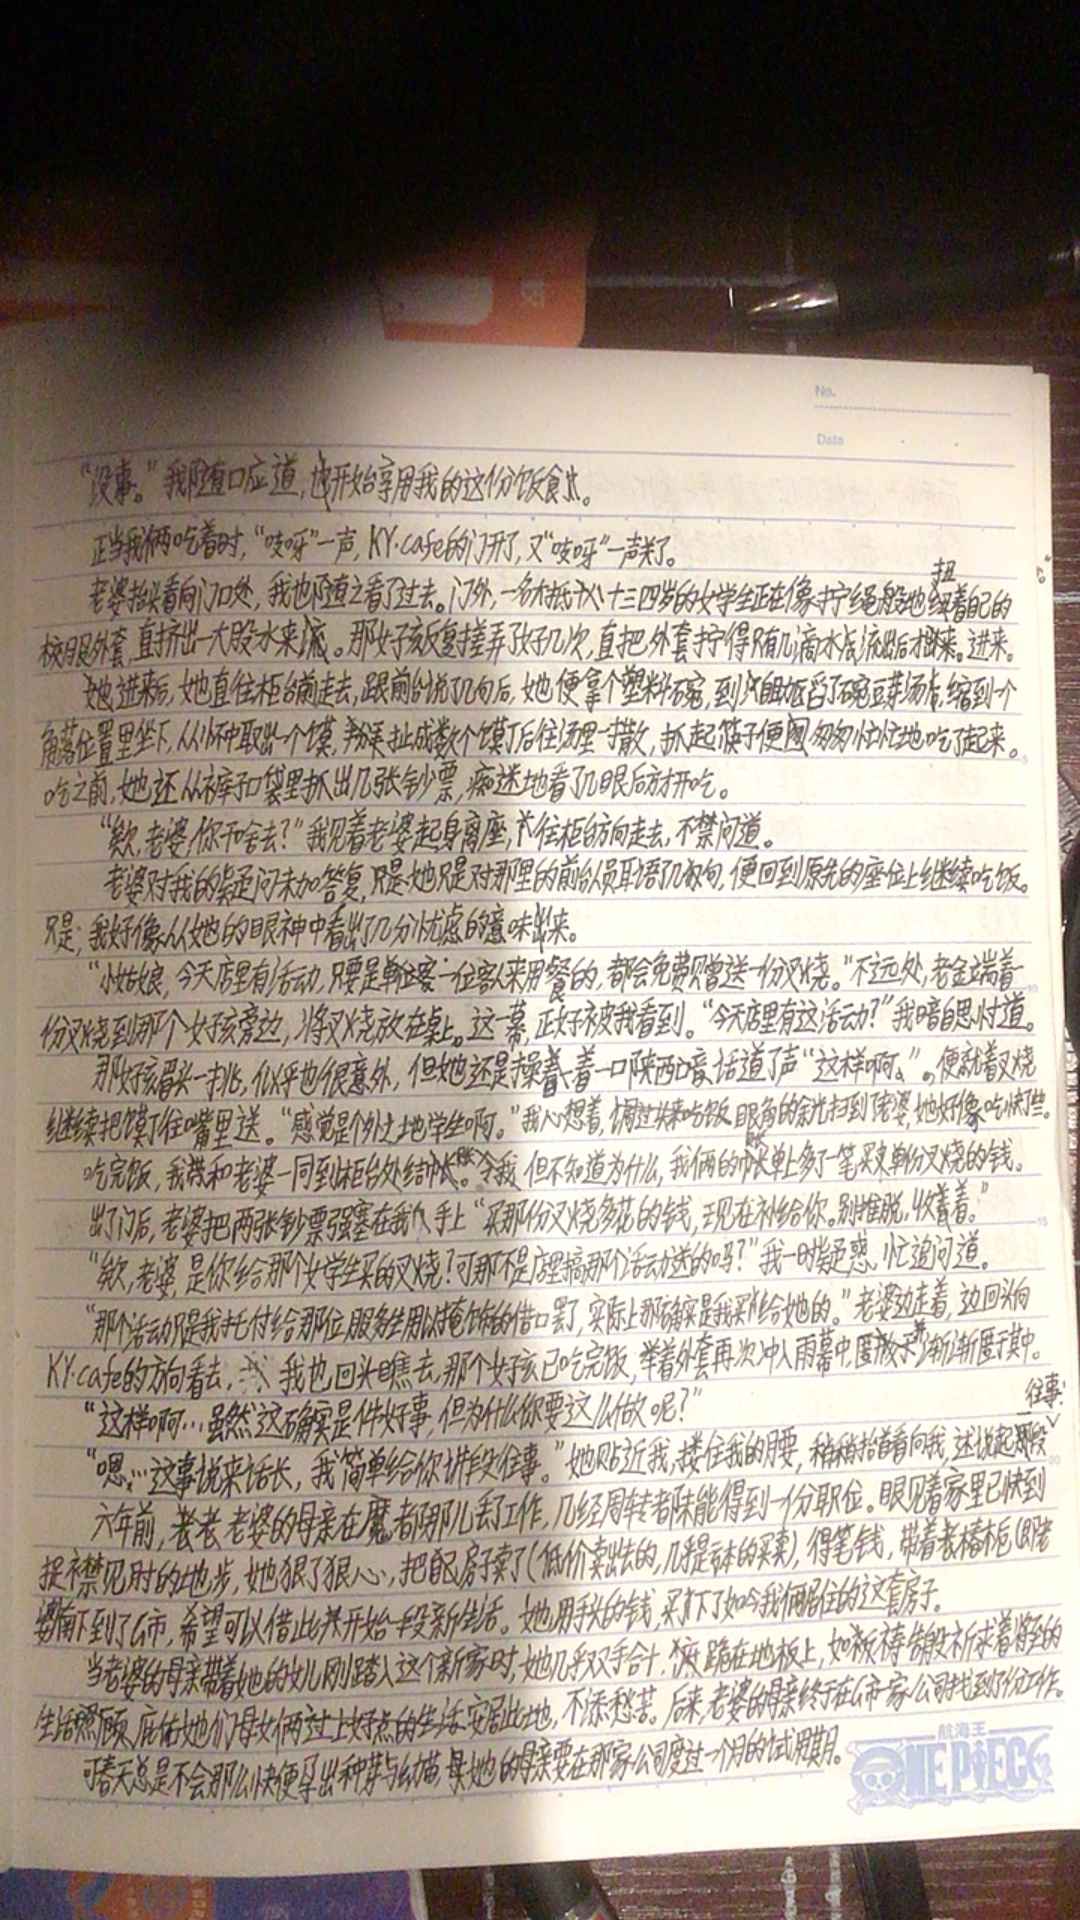 No.
Date
“没事。”我随口应道，也开始享用我的这份饭食。
正当我俩吃着时，“吱呀”一声，KY·cafe的门开了，又“吱呀”一声关了。
老婆抬头看向门口处，我也随之看了过去。门外，一名大抵十三四岁的女学生正在像拧绳般地扭着自己的
校服外套，直挤出一大股水来。那女孩反复搓弄了好几次，直把外套拧得只有几滴水流出后才进来。
她进来后，她直往柜台前走去，跟前台说了几句后，她便拿个塑料碗，到舀了碗豆芽汤，缩到一个
角落位置里坐下，从怀中取出一个馍，扯成数个馍丁后往汤里一撒，抓起筷子便匆匆忙忙地吃了起来。
吃之前，她还从裤子口袋里抓出几张钞票，痴迷地看了几眼后方开吃。
“欸，老婆，你干啥去？”我见着老婆起身离座，往柜台方向走去，不禁问道。
老婆对我的疑问未加答复，只是对那里的前台人员耳语了几句，便回到原先的座位上继续吃饭。
只是，我好像从她的眼神中看出了几分忧虑的意味来。
“小姑娘，今天店里有活动，只要是单一位客人来用餐的，都会免费赠送一份叉烧。”不远处，老金端着一
份叉烧到那个女孩旁边，将叉烧放在桌上。这一幕，正好被我看到。“今天店里有这活动？”我暗自思忖道。
那女孩眉头一挑，似乎也很意外，但她还是操着一口陕西口音话道了声“这样啊。”。便就着叉烧
继续把馍丁往嘴里送。“感觉是个外地学生啊。”我心想着，调过头来吃饭，眼角的余光扫到了老婆，她好像吃快些。
吃完饭，我和老婆一同到柜台处结账。令我但不知道为什么，我俩的账单上多了一笔买单份叉烧的钱。
出了门后，老婆把两张钞票强塞在我手上“买那份叉烧多花的钱，现在补给你。别推脱，收着。”
“欸，老婆，是你给那个女学生买的叉烧？可那不是店里搞那个活动送的吗？”我一时疑惑，忙追问道。
“那个活动只是我托付给那位服务生用以掩饰的借口罢了，实际上那确实是我买给她的。”老婆边走着，边回头向
KY·cafe的方向看去，我也回头瞧去，那个女孩已吃完饭，举着外套再次冲入雨幕中，渐渐匿于其中。
“这样啊…虽然这确实是件好事，但为什么你要这么做呢？”
“嗯…这事说来话长，我简单给你讲段往事。”她贴近我，搂住我的腰，稍稍抬首看向我，述说起那段往事：
六年前，老婆的母亲在魔都那儿丢了工作，几经周转都未能得到一份职位。眼见着家里已快到
捉襟见肘的地步，她狠了狠心，把自家房子卖了（低价卖出去的，几乎是亏本的买卖），得笔钱，带着老椿栀（即老
婆）南下到了G市，希望可以借此来开始一段新生活。她用手头的钱，买下了如今我俩居住的这套房子。
当老婆的母亲带着她的女儿刚踏入这个新家时，她几乎双手合十，跪在地板上，如祷告般祈求着将至的
生活照顾、庇佑她们母女俩过上好点的生活，安居此地，不添愁苦。后来，老婆的母亲终于在G市一家公司找到了份工作。
可春天总是不会那么快便孕出种芽与幼苗，她的母亲要在那家公司度过一个月的试用期。
航海王
ONE PIECE